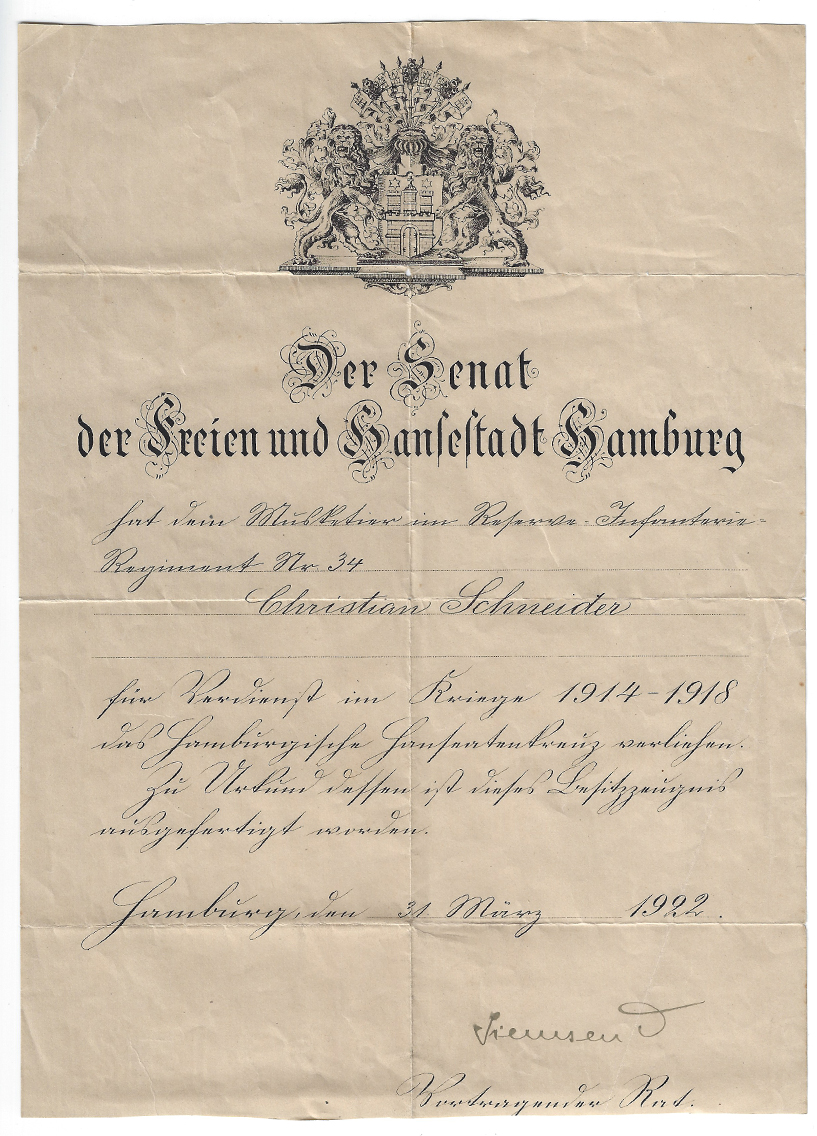 Der Senat
der Freien und Hansestadt Hamburg
hat dem Musketier im Reserve-Infanterie-
Regiment Nr. 34
Christian Schneider
für Verdienst im Kriege 1914-1918
das Hamburgische Hanseatenkreuz verliehen.
Zu Urkund dessen ist dieses Besitzzeugnis
ausgefertigt worden.
Hamburg, den 31. März 1922.
Siemsen D
Vortragender Rat.